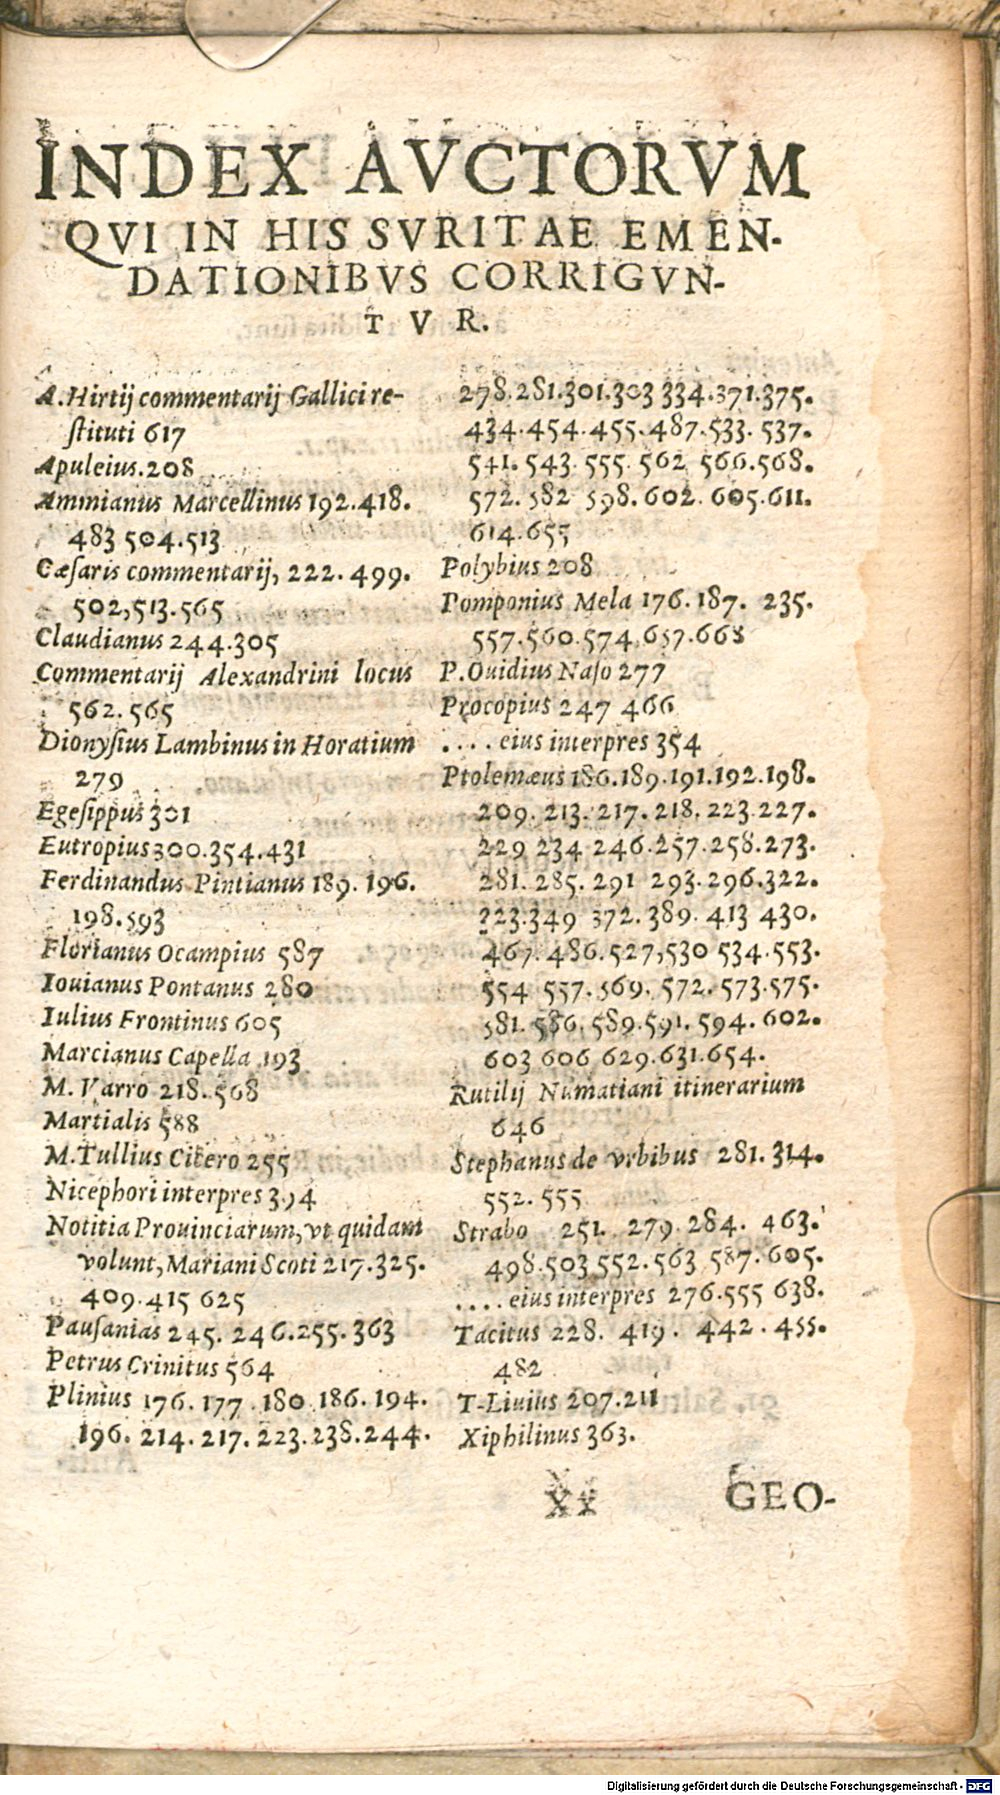 INDEX AVCTORVM
QVI IN HIS SVRITAE EMEN-
DATIONIBVS CORRIGVN-
T V R.
A. Hirtij commentarij Gallici re-
ſtituti 617
Apuleius. 208
Ammianus Marcellinus 192. 418.
483 504. 513
Cæſaris commentarij, 222. 499.
502, 513. 565
Claudianus 244. 305
Commentarij Alexandrini locus
562. 565
Dionyſius Lambinus in Horatium
279
Egeſippus 301
Eutropius 300. 354. 431
Ferdinandus Pintianus 189. 196.
198. 593
Florianus Ocampius 587
Iouianus Pontanus 280
Iulius Frontinus 605
Marcianus Capella 193
M. Varro 218. 568
Martialis 588
M. Tullius Cicero 255
Nicephori interpres 394
Notitia Prouinciarum, vt quidam
volunt, Mariani Scoti 217. 325.
409. 415 625
Pauſanias 245. 246. 255. 363
Petrus Crinitus 564
Plinius 176. 177. 180. 186. 194.
196. 214. 217. 223. 238. 244.
278. 281. 301. 303 334. 371. 375.
434. 454. 455. 487. 533. 537.
541. 543. 555. 562 566. 568.
572. 582 598. 602. 605. 611.
614. 655
Polybius 208
Pomponius Mela 176. 187. 235.
557. 560. 574. 657. 668
P. Ouidius Naſo 277
Procopius 247 466
.... eius interpres 354
Ptolemæus 186. 189. 191. 192. 198.
209. 213. 217. 218. 223. 227.
229 234 246. 257. 258. 273.
281. 285. 291 293. 296. 322.
323. 349 372. 389. 413 430.
467. 486. 527, 530 534. 553.
554 557. 569. 572. 573. 575.
581. 586. 589. 591. 594. 602.
603 606 629. 631. 654.
Rutilij Numatiani itinerarium
646
Stephanus de vrbibus 281. 314.
552. 555
Strabo 251. 279. 284. 463.
498. 503 552. 563 587. 605.
.... eius interpres 276. 555 638.
Tacitus 228. 419. 442. 455.
482
T-Liuius 207. 211
Xiphilinus 363.
Xx GEO-
Digitalisierung gefördert durch die Deutsche Forschungsgemeinschaft - DFG